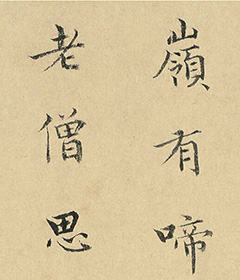 嶺有啼
老僧思